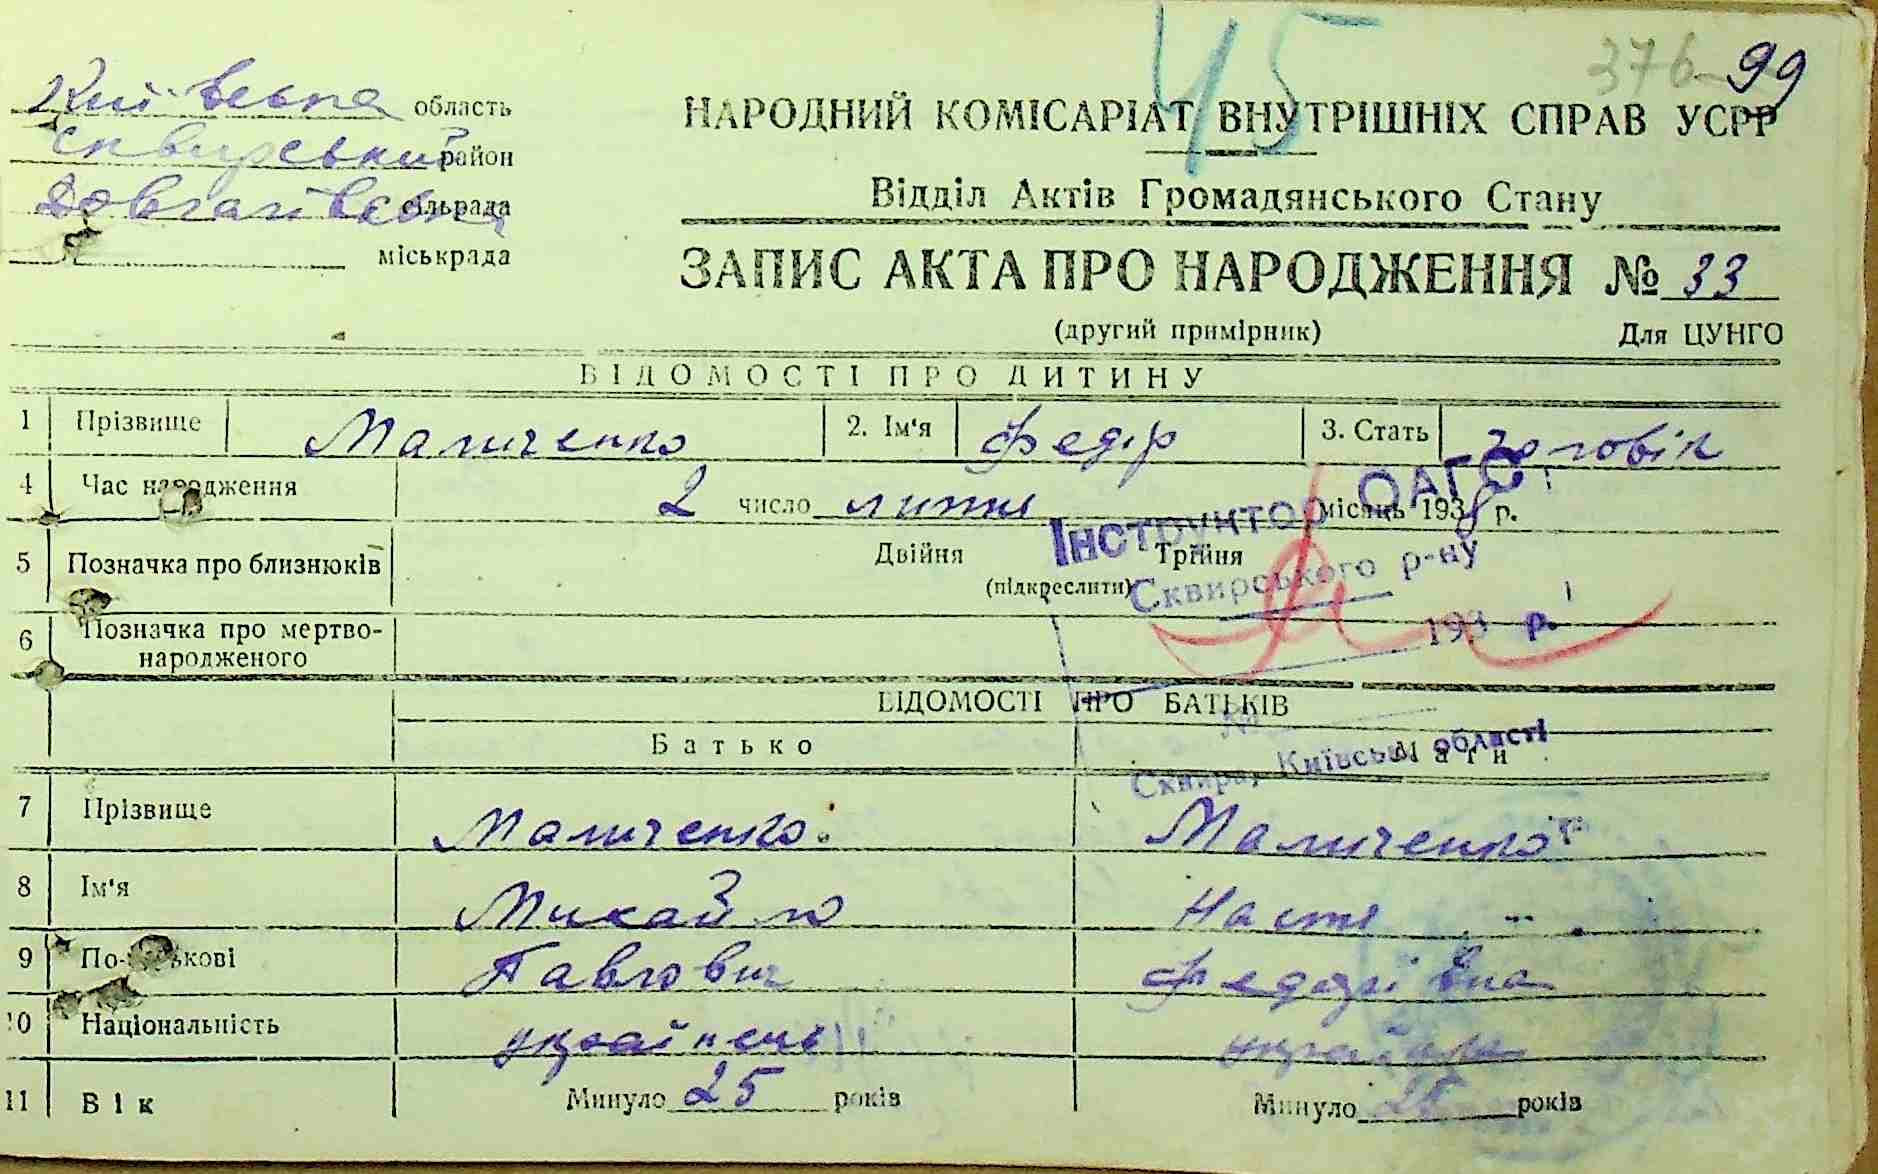 45
376 99
Київська область
Сквирський район
Довгалівська сільрада
міськрада
НАРОДНИЙ КОМІСАРІАТ ВНУТРІШНІХ СПРАВ УСРР
Відділ Актів Громадянського Стану
ЗАПИС АКТА ПРО НАРОДЖЕННЯ № 33
(другий примірник) Для ЦУНГО
ВІДОМОСТІ ПРО ДИТИНУ
1 Прізвище Маличенко 2. Ім'я Федір 3. Стать чоловік
4 Час народження 2 число лютня місяць 1938 р.
Інструктор ОАГС
5 Позначка про близнюків Двійня Трійня
(підкреслити)
Сквирського р-ну
6 Позначка про мертво-
народженого
193 р.
ВІДОМОСТІ ПРО БАТЬКІВ
№
Батько Мати
Сквира, Київської області
7 Прізвище Маличенко Маличенко
8 Ім'я Михайло Настя
9 По-батькові Павлович Федорівна
10 Національність українець українка
11 Вік Минуло 25 років Минуло 25 років